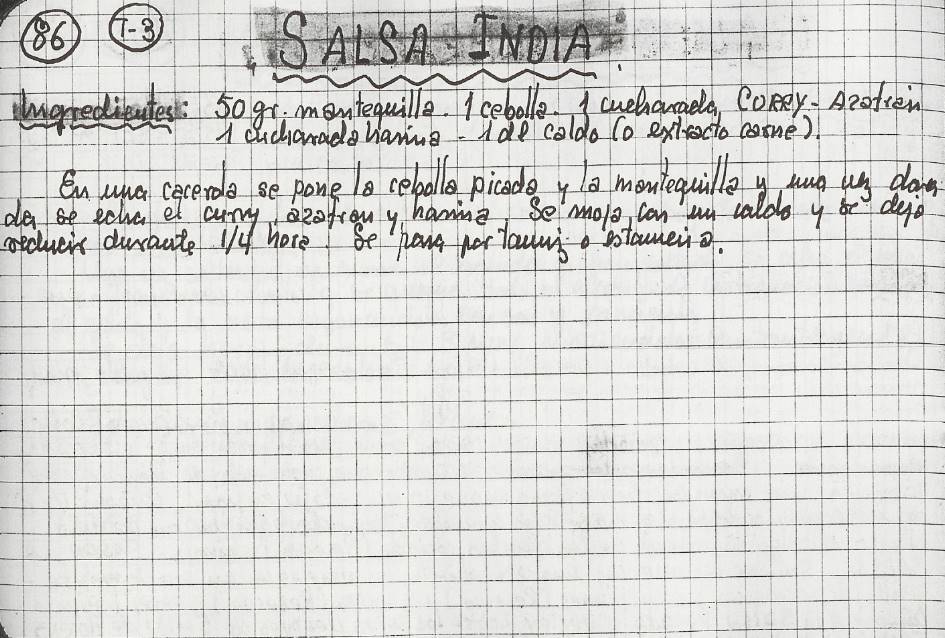 86 T-3 SALSA INDIA
Ingredientes: 50 gr. mantequilla. 1 cebolla. 1 cucharada CORRY - Azafrán
1 cucharada harina - 1 dl caldo (o extracto carne).
En una cacerola se pone la cebolla picada y la mantequilla y una vez dora
da, se echa el curry, azafran y harina. Se moja con un caldo y se deja
reducir durante 1/4 hora. Se pasa por tamiz o estameña.